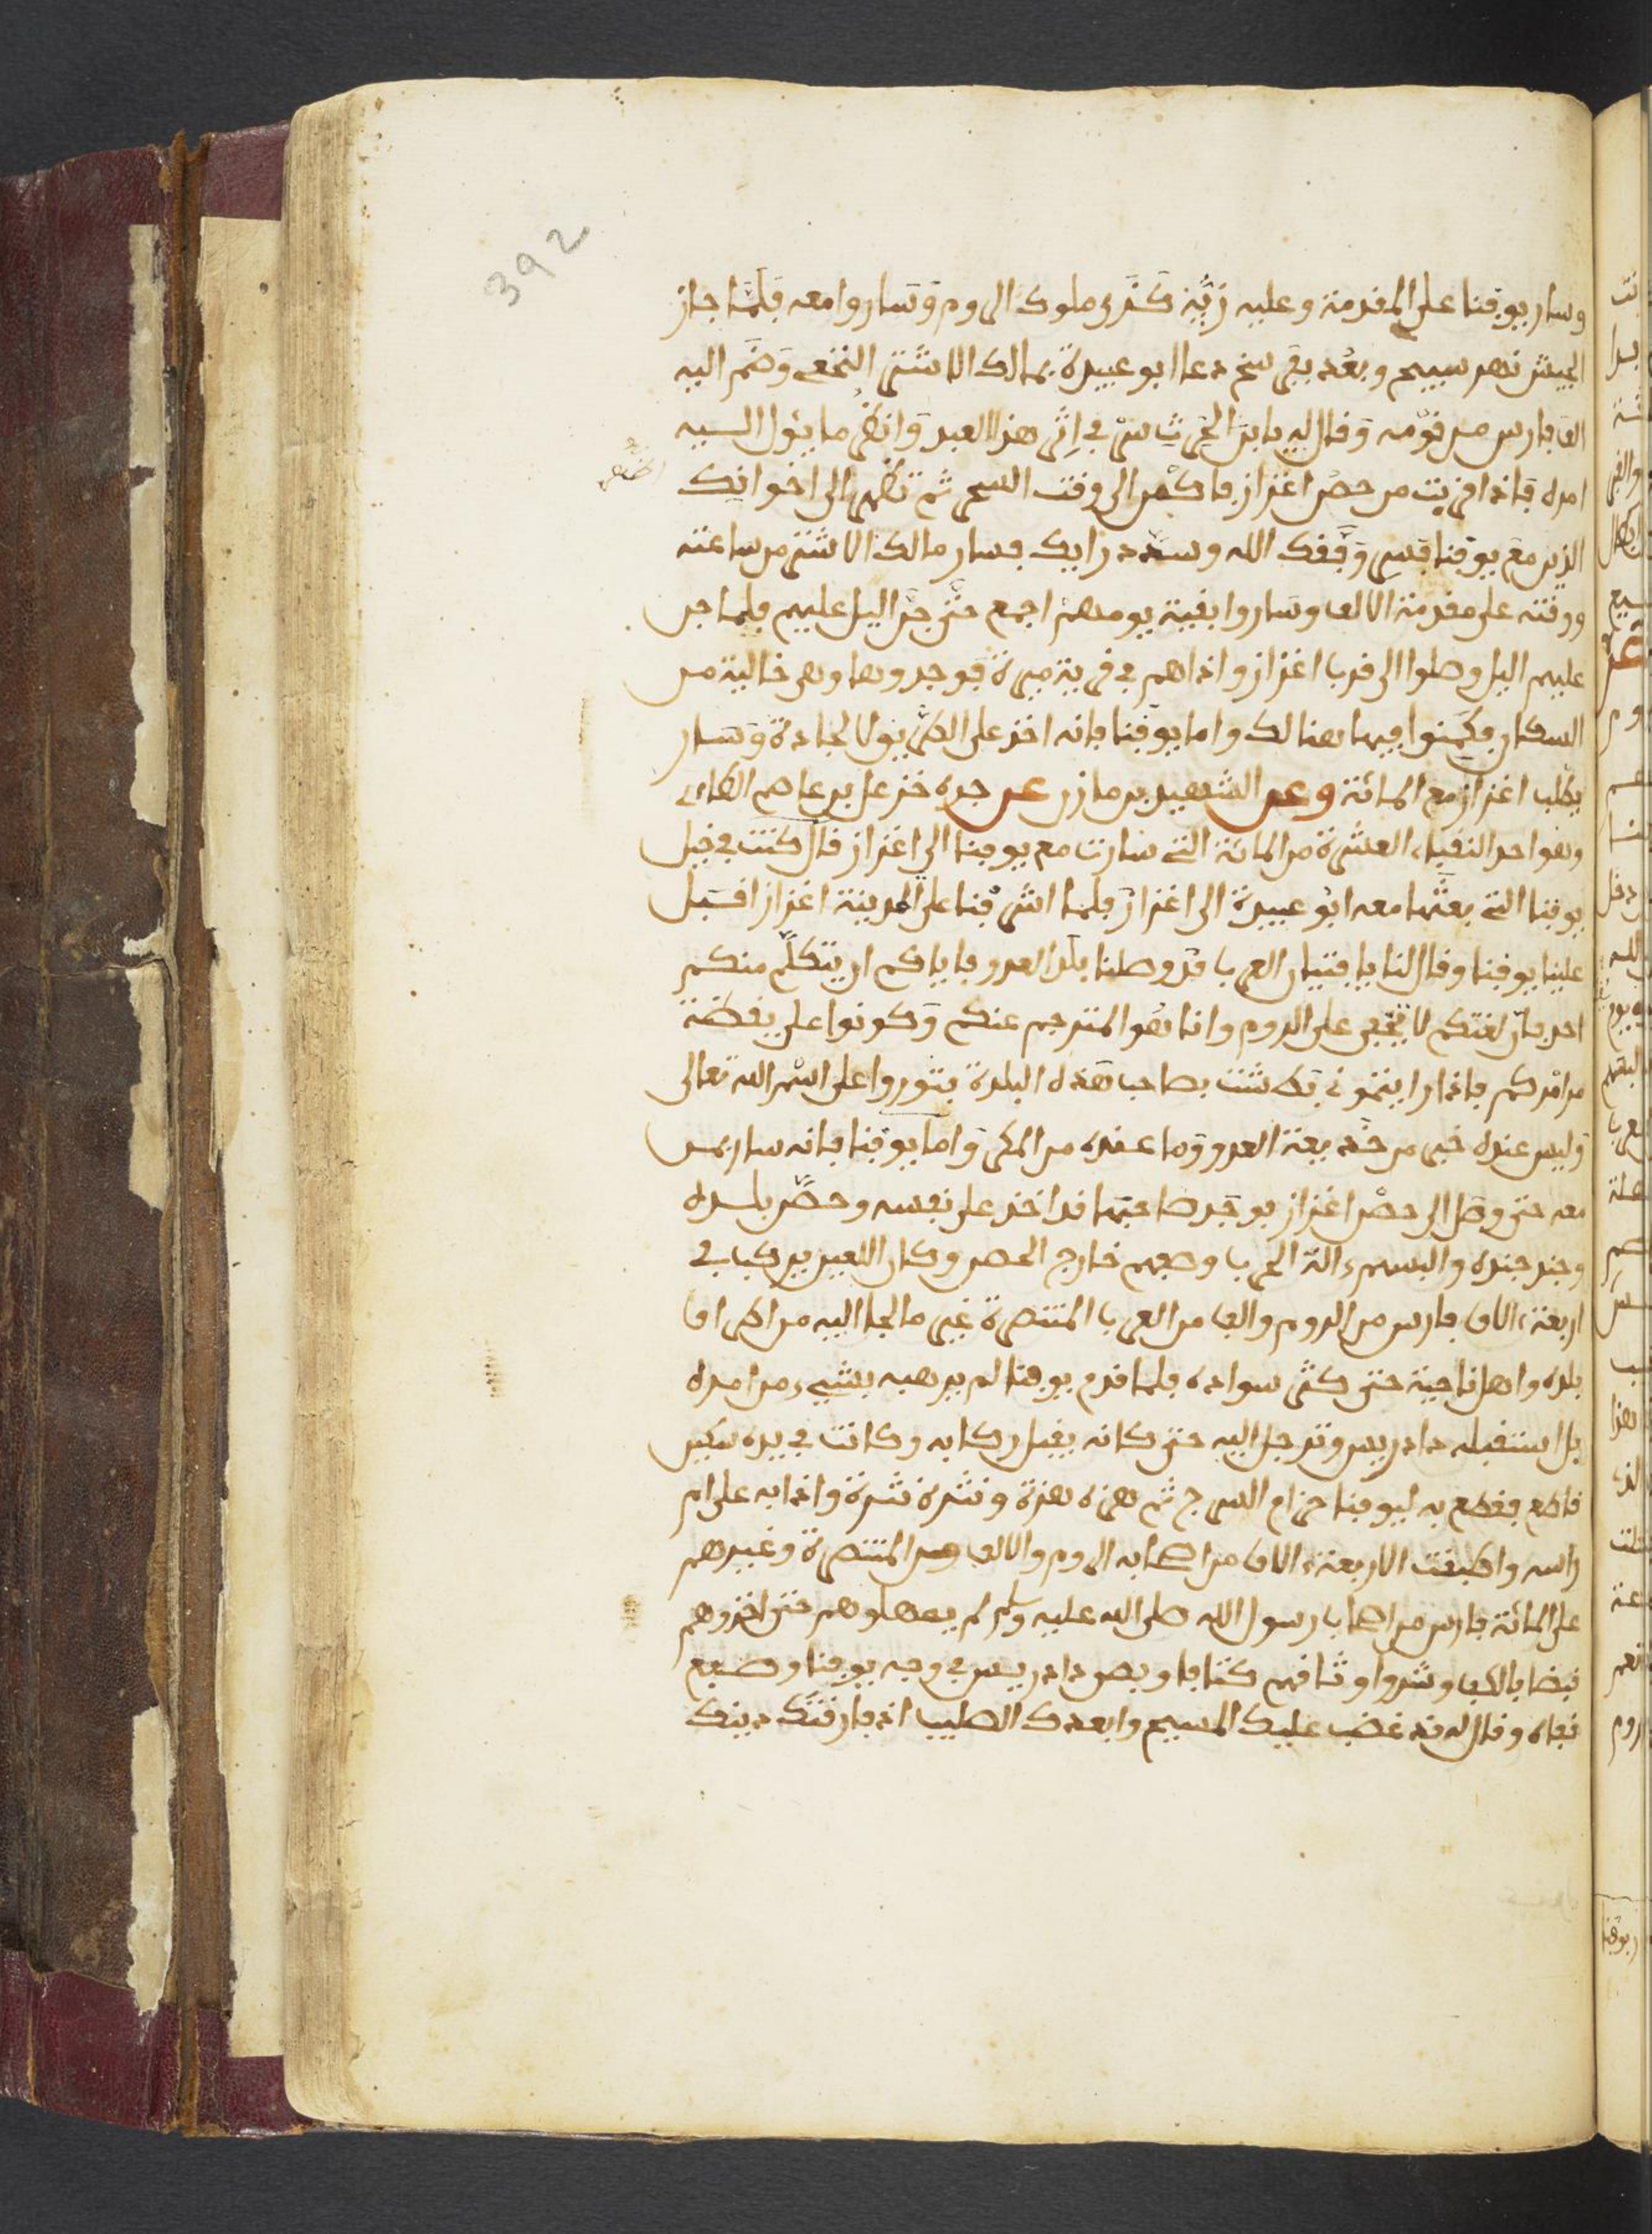 392
وسار يوقنا على المقدمة وعليه زي كزي ملوك الروم وساروا معه فلما جاز
الجيش نهر سبيح وبعد بقي دعا ابو عبيدة بمالك الاشتر النخعي وضم اليه
الف فارس من قومه وقال له يا بن الحرث سر في اثر هذا العبد وانظر ما يؤل اليه
امره فاذا قربت من حصن اعزاز فاكمن الى وقت السحر ثم تظهر الى اخوانك
الذين مع يوقنا فسر وفقك الله وسدد رايك فسار مالك الاشتر من ساعته
ووقته على مقدمة الالف وساروا بقية يومهم اجمع حتى جن اليل عليهم فلما جن
عليهم اليل وصلوا الى قرب اعزاز واذاهم في قرية ميرة فوجدوها وهي خالية من
السكان فكمنوا فيها هنالك واما يوقنا فانه اخذ على الطريق الجادة وسار
يطلب اعزاز مع المائة وعن الشهيد بن مازن عن جده خزعل بن عاصم الطاءي
وهو احد النقباء العشرة من المائة التي سارت مع يوقنا الى اعزاز قال كنت في خيل
يوقنا التي بعثها معه ابو عبيدة الى اعزاز فلما اشرفنا على المدينة اعزاز اقبل
علينا يوقنا وقال لنا يا فتيان العرب قد وصلنا بلد العدو فاياكم ان يتكلم منكم
احد فان لغتكم لا تخفى على الروم وانا هو المترجم عنكم وكونوا على يقضة
من امركم فاذا رايتموني بطشت بصاحب هذه البلدة فثوروا على اسم الله تعالى
وليس عنده خبر من خديعة العدو وما عنده من المكر واما يوقنا فانه سار بمن
معه حتى وصل الى حصن اعزاز فوجد صاحبها قد اخذ على نفسه وحصن بلده
وجند جنده والبسهم ءالة الحرب وصفهم خارج الحصن وكان اللعين يركب في
اربعة ءالاف فارس من الروم والف من العرب المتنصرة غير ما لجا اليه من اطراف
بلده واهل ناحية حتى كثر سواده فلما قدم يوقنا لم يرهبه بشيء من امره
بل استقبله دادريس وترجل اليه حتى كانه يقبل ركابه وكانت في يده سكين
قاطع فقطع به ليوقنا حزام السرج ثم هزه هزة ونثره نثرة واذا به على ام
راسه واطبقت الاربعة ءالاف من اصحابه الروم والالف من المتنصرة وغيرهم
على المائة فارس من اصحاب رسول الله صلى الله عليه وسلم لم يمهلوهم حتى اخذوهم
قبضا بالكف وشدوا وثاقهم كتافا وبصق دادريس في وجه يوقنا وصفع
قفاه وقال له قد غضب عليك المسيح وابعدك الصليب اذ فارقتك دينك